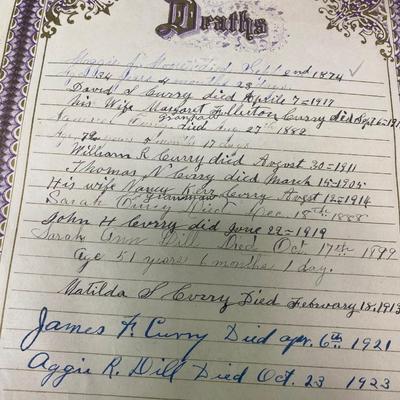 Deaths
Maggie J. Died Sept 2nd 1874
Age 34 years 4 months 23
David S Curry died Aprile 7=1917
His Wife Margaret Fullerton Curry died Sept 6=191
grandpa
Samuel Curry died Aug 27th 1882
Age 72 years 5 months 17 days
William R Curry died Avgost 30=1911
Thomas N Curry died March 15=1905
His wife Nancy Kerr Curry Avgst 12=1914
grandmaw
Sarah Curry Died Dec. 18th 1888
John H Curry died June 22=1919
Sarah Ann Dill Died Oct 17th 1899
Age 51 years 6 months 1 day.
Matilda S Curry Died February 18, 1913
James F. Curry Died apr. 6th 1921
Aggie R. Dill Died Oct. 23 1923